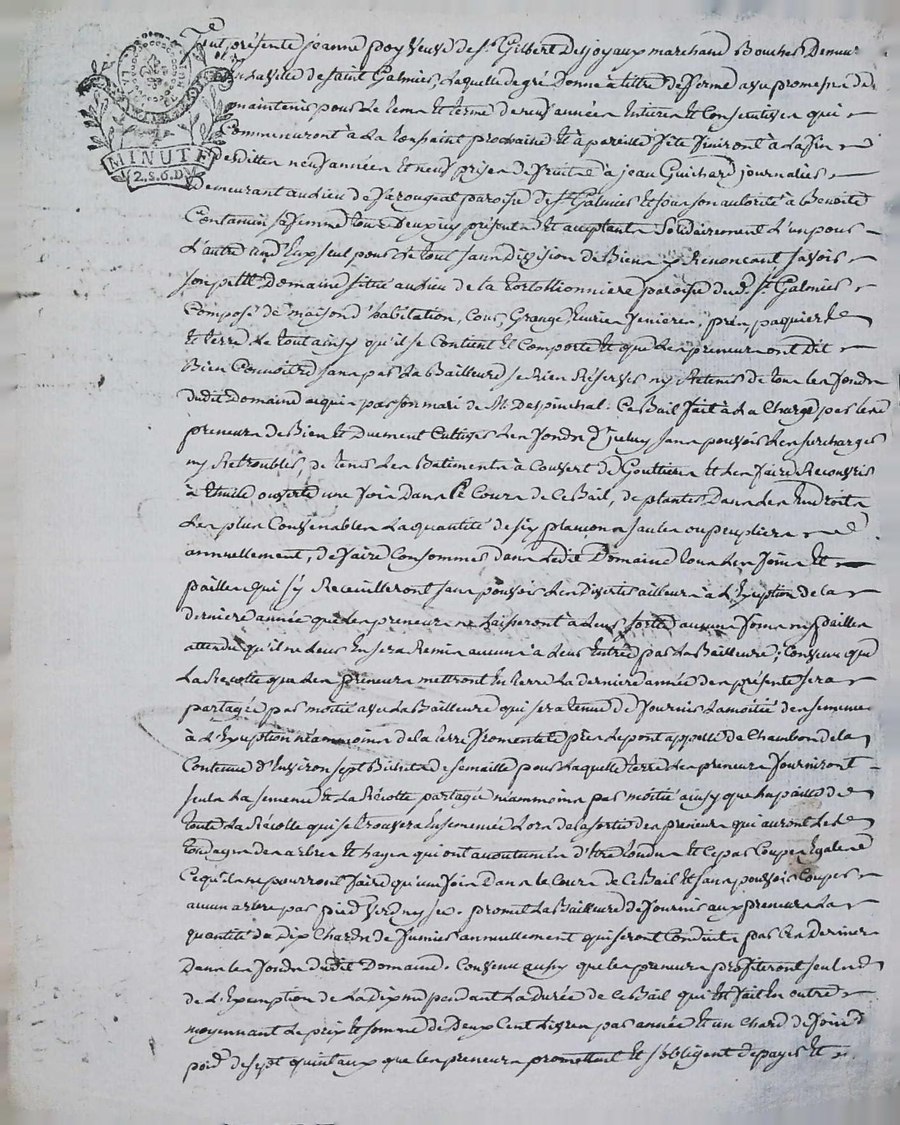 MINUTE
2.S.6.D
Fut présente jeanne poy veuve de sr. Gilbert Desjoyaux marchand Boucher Demeurt
en la ville de saint Galmier, Laquelle de gré Donne à titre de ferme avec promesse de
maintenir pour Le tems et terme de neuf années Entieres et Consecutives qui
Commenceront à La toussaint prochaine et à pareille fête finiront à La fin
Desdittes neuf années et neuf prises de fruits à jean Guichard journalier
Demeurant au lieu de farougeat paroisse de st. Galmier et sous son autorité à Benoite
Contamin sa femme tous Deux icy présents et acceptants Solidairement L'un pour
L'autre un d'Eux seul pour Le tout sans Division de Biens y Renoncant savoir
son petit Domaine situé au lieu de la tortollionniere paroisse dud. st. Galmier
Composé de maison d'habitation, Cour, Grange, Ecurie fenieres, prés paquier
et terre Le tout ainsy qu'il se Contient et Comporte et que Les preneurs ont Dit
Bien Connoitre sans par La Bailleure se Rien Réserver ny Retenir de tous les fonds
dudit Domaine acquis par son mari de Mr. Despinchal. Ce Bail fait à La Charge par les
preneurs de Bien et Duement Cultiver Les fonds d'Iceluy sans pouvoir Les surcharger
ny Retroubler, de tenir Les Batiments à Couvert de Gouttieres et Les faire Recouvrir
à thuile ouverte une fois Dans le Cours de Ce Bail, de planter Dans Les Endroits
Les plus Convenables La quantité de six plançons saules ou peupliers
annuellement, de faire Consommer dans Ledit Domaine tous Les foins et
pailles qui s'y Receuilleront sans pouvoir Les Divertir ailleurs à L'Exception de la
derniere année que Les preneurs ne Laisseront à Leur sortie aucuns foins ny pailles
attendu qu'il ne Leur En sera Remis aucun à Leur Entrée par La Bailleure; Convenu que
La Récolte que Les preneurs mettront En terre La derniere année des présentes sera
partagée par moitié avec La Bailleure qui sera tenue de fournir La moitié des semences
à L'Exception néanmoins de la terre fromentale près Le pont appellé de Chambon de la
Contenue d'Environ sept Bichets de semaille pour Laquelle terre Les preneurs fourniront
seuls La semence et La Récolte partagée néanmoins par moitié ainsy que La paille de
toute La Récolte qui se trouvera Ensemencée Lors de la sortie des preneurs qui auront Les
tondages des arbres et hayes qui ont accoutumés d'être tondus et Ce par Coupes Egales
Ce qu'ils ne pourront faire qu'une fois Dans le Cours de Ce Bail et sans pouvoir Couper
aucun arbre par pied Verd ny sec. promet La Bailleure de fournir aux preneurs La
quantité de Dix Chards de fumier annuellement qui seront Conduits par Ces Derniers
Dans les fonds dudit Domaine. Convenu aussy que les preneurs profiteront seuls
de L'Exemption de La Dixme pendant La Durée de Ce Bail qui est fait En outre
moyennant Le prix et somme de Deux Cent Livres par année et un Chard de foin
poid de sept quintaux que les preneurs promettent et s'obligent de payer et